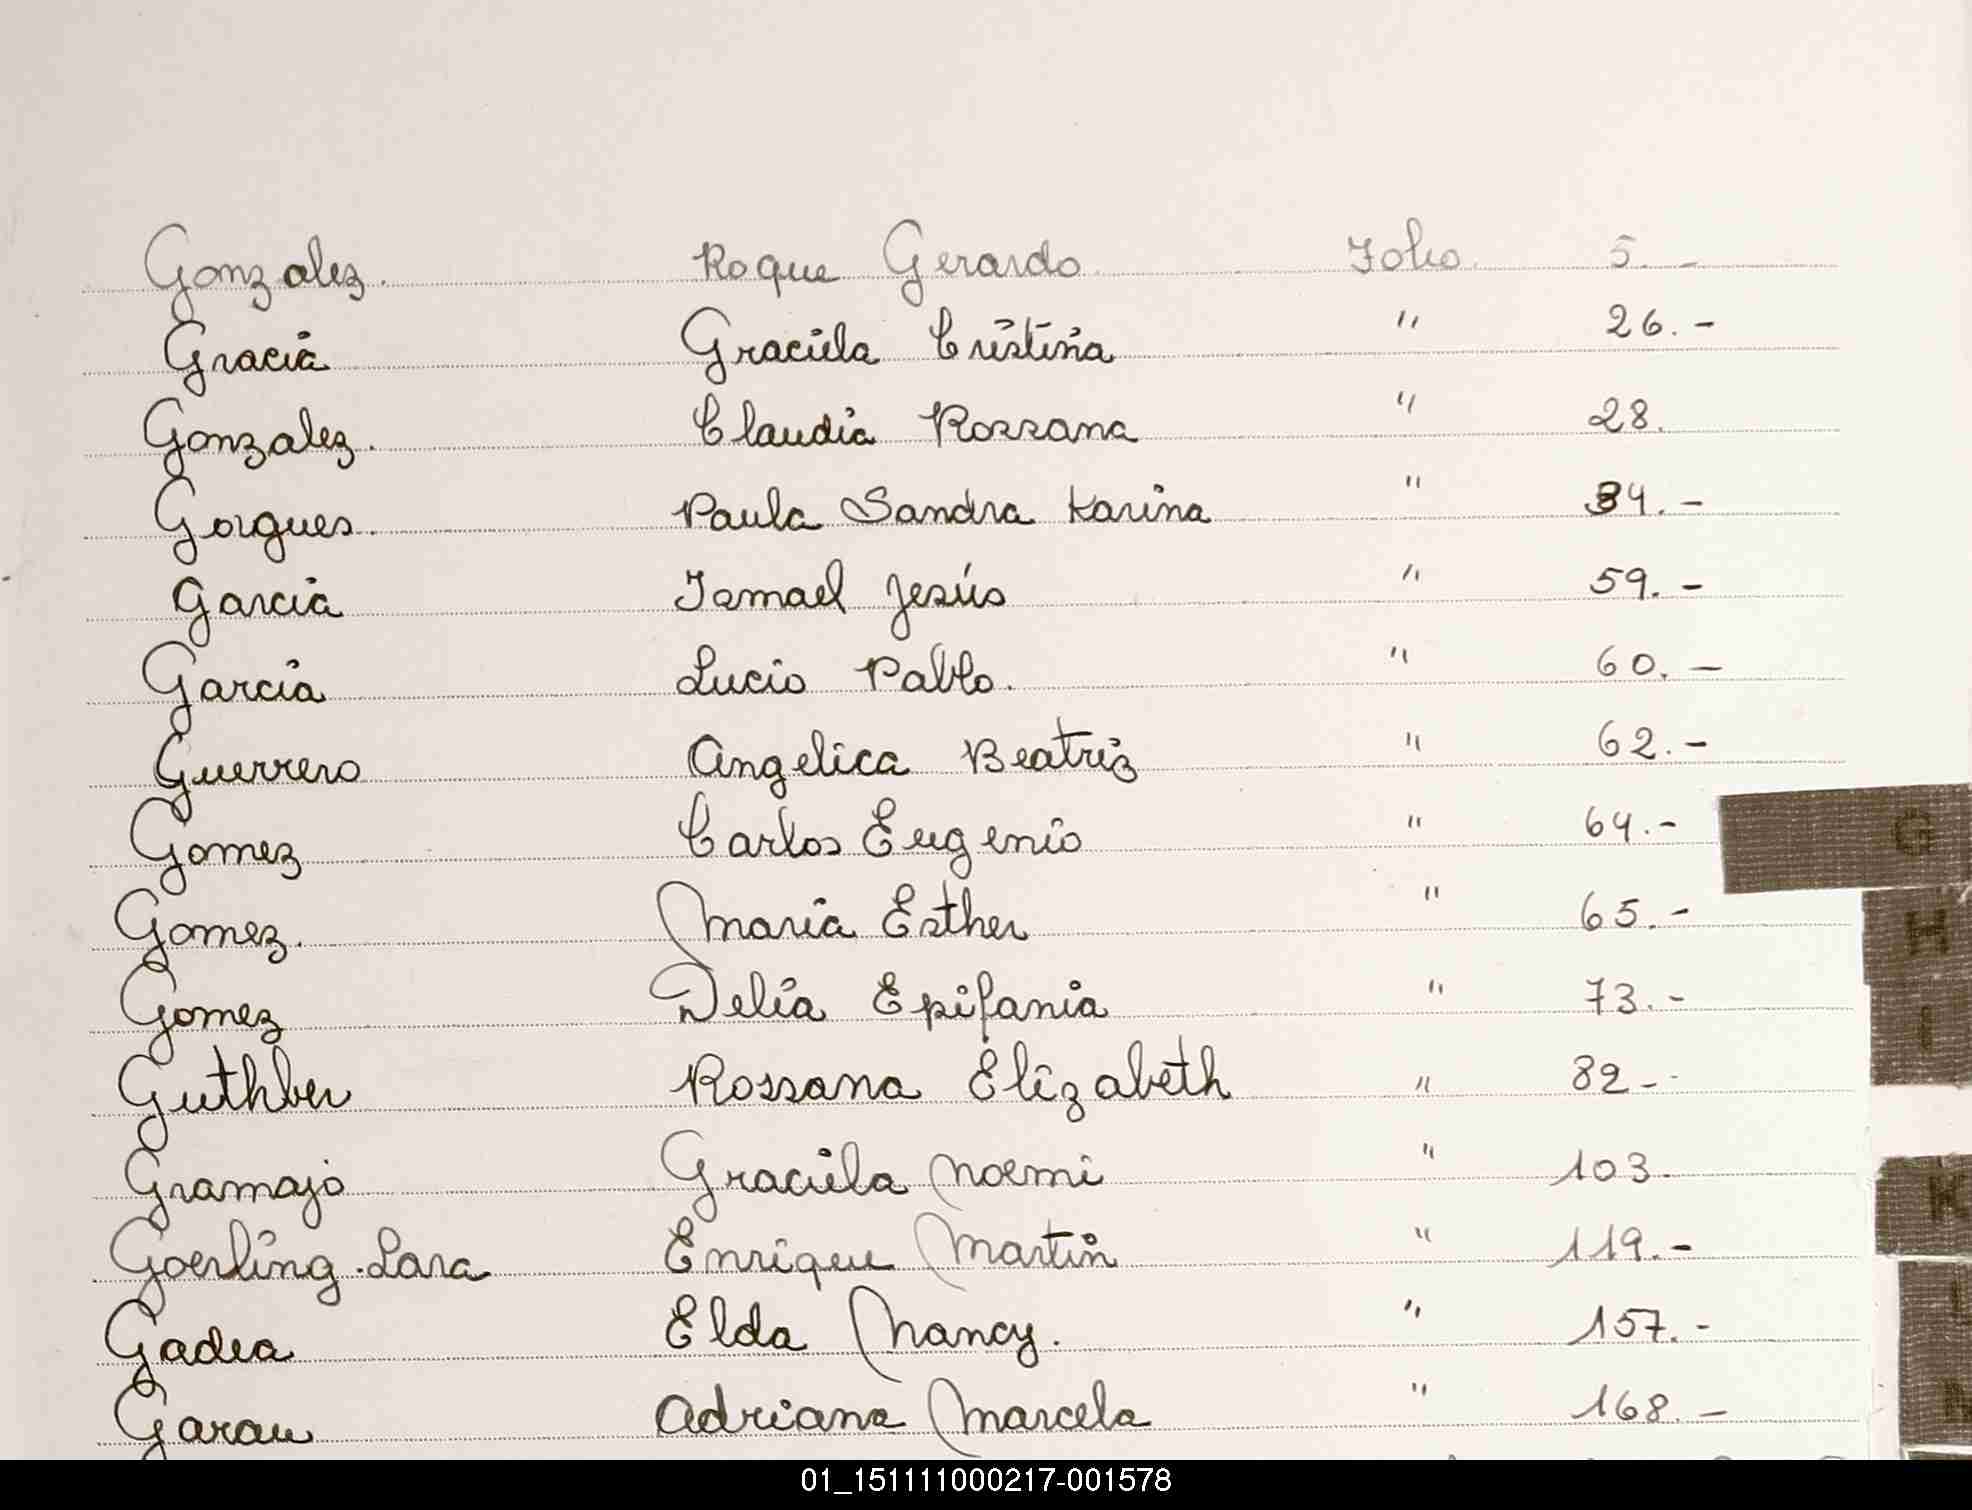 Gonzalez. Roque Gerardo. Folio. 5. -
Gracia Graciela Cristina " 26. -
Gonzalez. Claudia Rossana " 28.
Gorgues. Paula Sandra Karina " 34. -
Garcia Ismael Jesús " 59. -
Garcia Lucio Pablo. " 60. -
Guerrero Angelica Beatriz " 62. -
Gomez Carlos Eugenio " 64. -
G
Gomez. Maria Esther " 65. -
H
Gomez Delia Epifania " 73. -
I
Guthber Rossana Elizabeth " 82 -
Gramajo Graciela Noemi " 103.
K
Goerling. Lara Enrique Martin " 119. -
Gadea Elda Nancy. " 157. -
Garau Adriana Marcela " 168. -
01_151111000217-001578